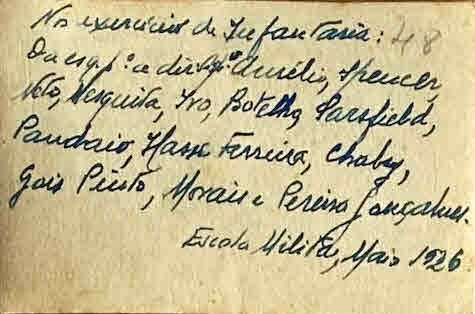 Nos exercicios de Infantaria: 48
Da esqª. p.ª a dirtª: Aurélio, Spencer,
Neto, Mesquita, Ivo, Botelho, Sarsfield,
Pandaio, Hasse Ferreira, Chaby,
Gois Pinto, Morais e Pereira Gonçalves.
Escola Militar, Maio 1926